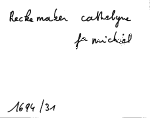 Reckemaker cathelyne
fa michiel
1694/31